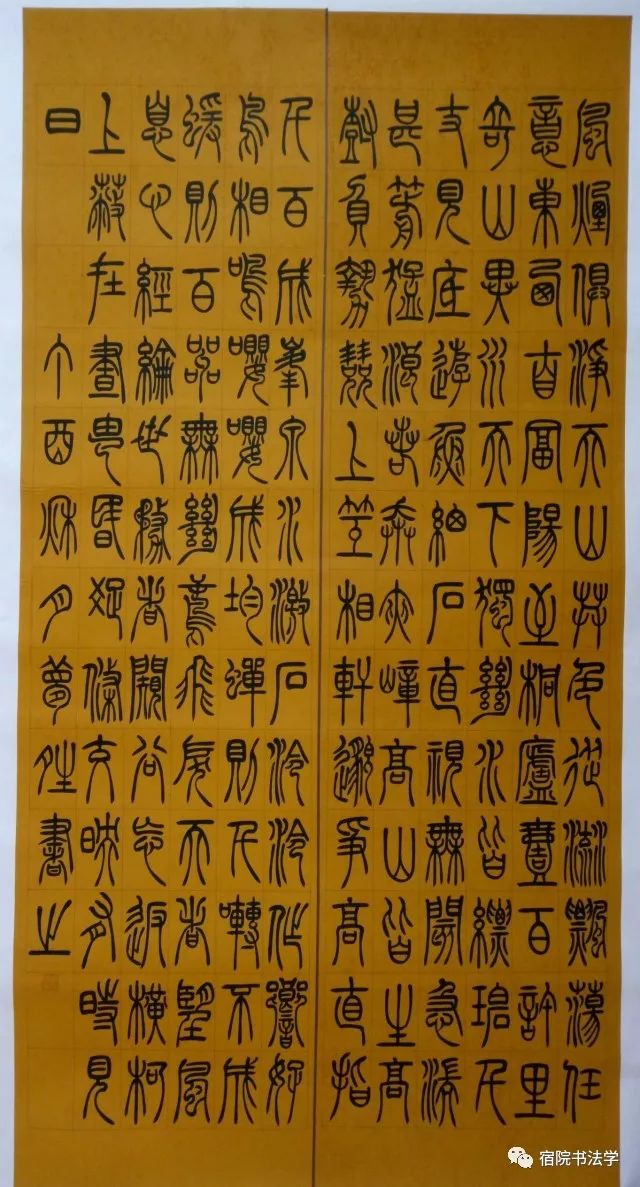 風煙俱淨天山共色從流飄蕩任
意東西自富陽至桐廬壹百許里
奇山異水天下獨絕水皆縹碧千
丈見底游魚細石直視無閡急湍
甚箭猛浪若奔夾嶂高山皆生高
樹負勢競上互相軒邈爭高直指
千百成峯泉水激石泠泠作響好
鳥相鳴嚶嚶成均蟬則千囀不成
蝯則百嘂無絕鳶飛戾天者望風
息心經綸世務者闚谷忘返橫柯
上蔽在晝昏疏條交映有時見
日 丁酉秋月夢書之
宿院书法学